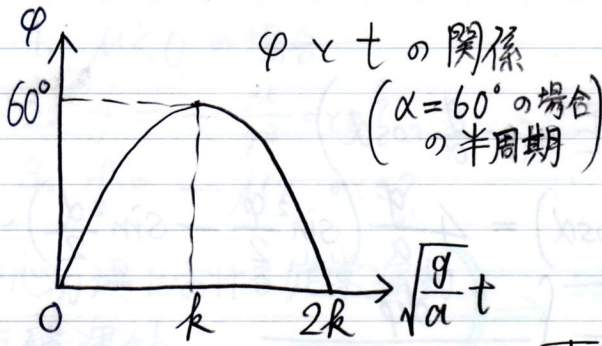 φ
φとtの関係
60°
(α=60°の場合
の半周期)
0
k
2k
√(g/a) t